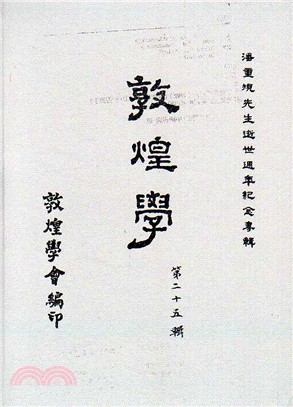 潘重規先生逝世週年紀念專輯
敦煌學
第二十五輯
敦煌學會編印
三民